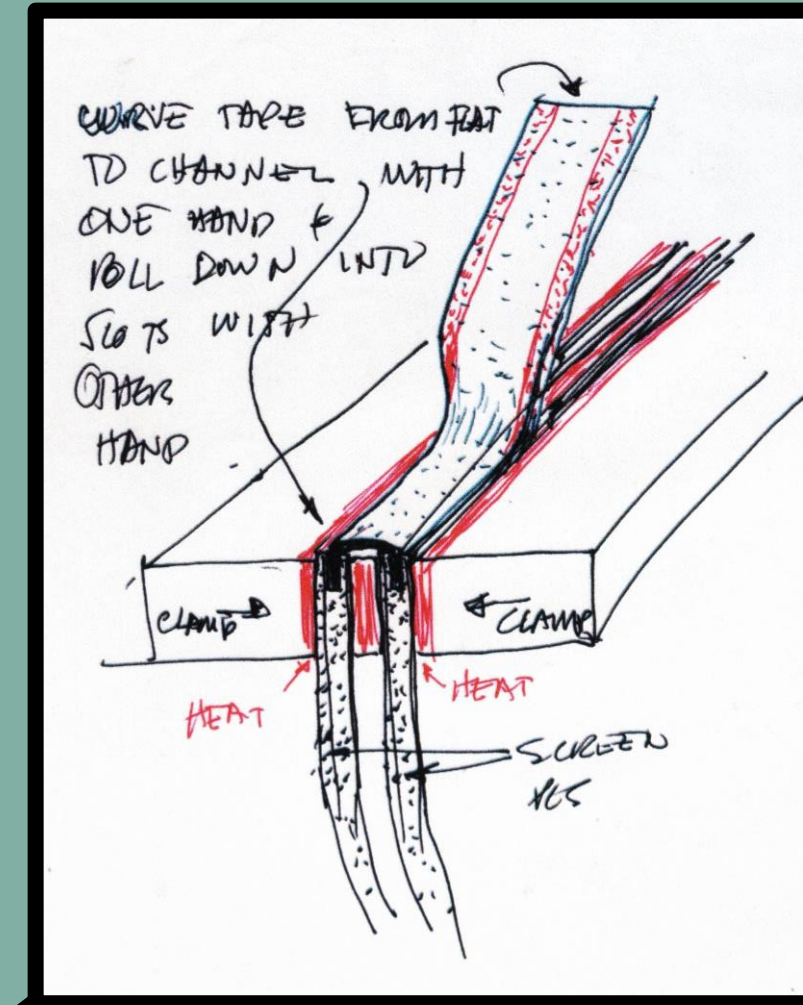 CURVE TAPE FROM FLAT
TO CHANNEL WITH
ONE HAND &
ROLL DOWN INTO
SLOTS WITH
OTHER
HAND
CLAMP
CLAMP
HEAT
HEAT
SCREEN